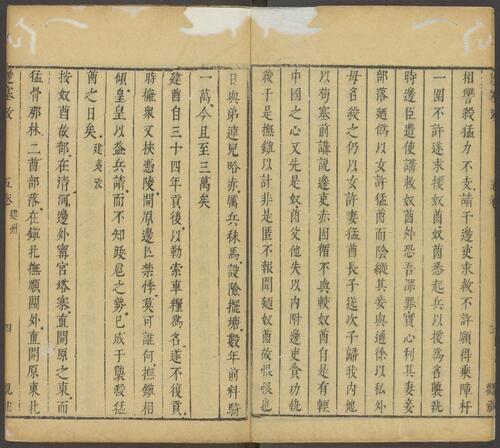 相讐殺猛力不支請于邊吏求救不許願得乘障杆
一圍不許遂求援奴酋奴酋悉起兵以援為名襲執
時邊臣遣使講救奴酋外恐吾深罪實心利其妻妾
部落廼僞以女許猛酋而陰縱其妾與通徐以私外
母名殺之仍以女許妻猛酋長子送次子歸我内地
以苟塞前講説邊吏亦因循不與較奴酋自是有輕
中國之心又先是奴酋父他失以内附邊吏貪功執
義于是撫鎮以計非是匿不報聞廼奴酋故恨恨也
日與弟速兒畧赤厲兵秣馬設險擺塘數年前料騎
一萬今且至三萬矣
建酋自三十四年貢後以勒索車糧為名遂不復貢
時擁衆叉挾憑陵開原邊臣禁悸莫可誰何撫鎮相
傾皇皇以益兵請而不知跋扈之勢已成于襲殺猛
酋之日矣建夷攷
按奴酋故部在清河邊外甯官塔寨直開原之東而
猛骨那林二酋部落在鎮北撫順關外直開原東北
邊塞攷
五卷 建州
四